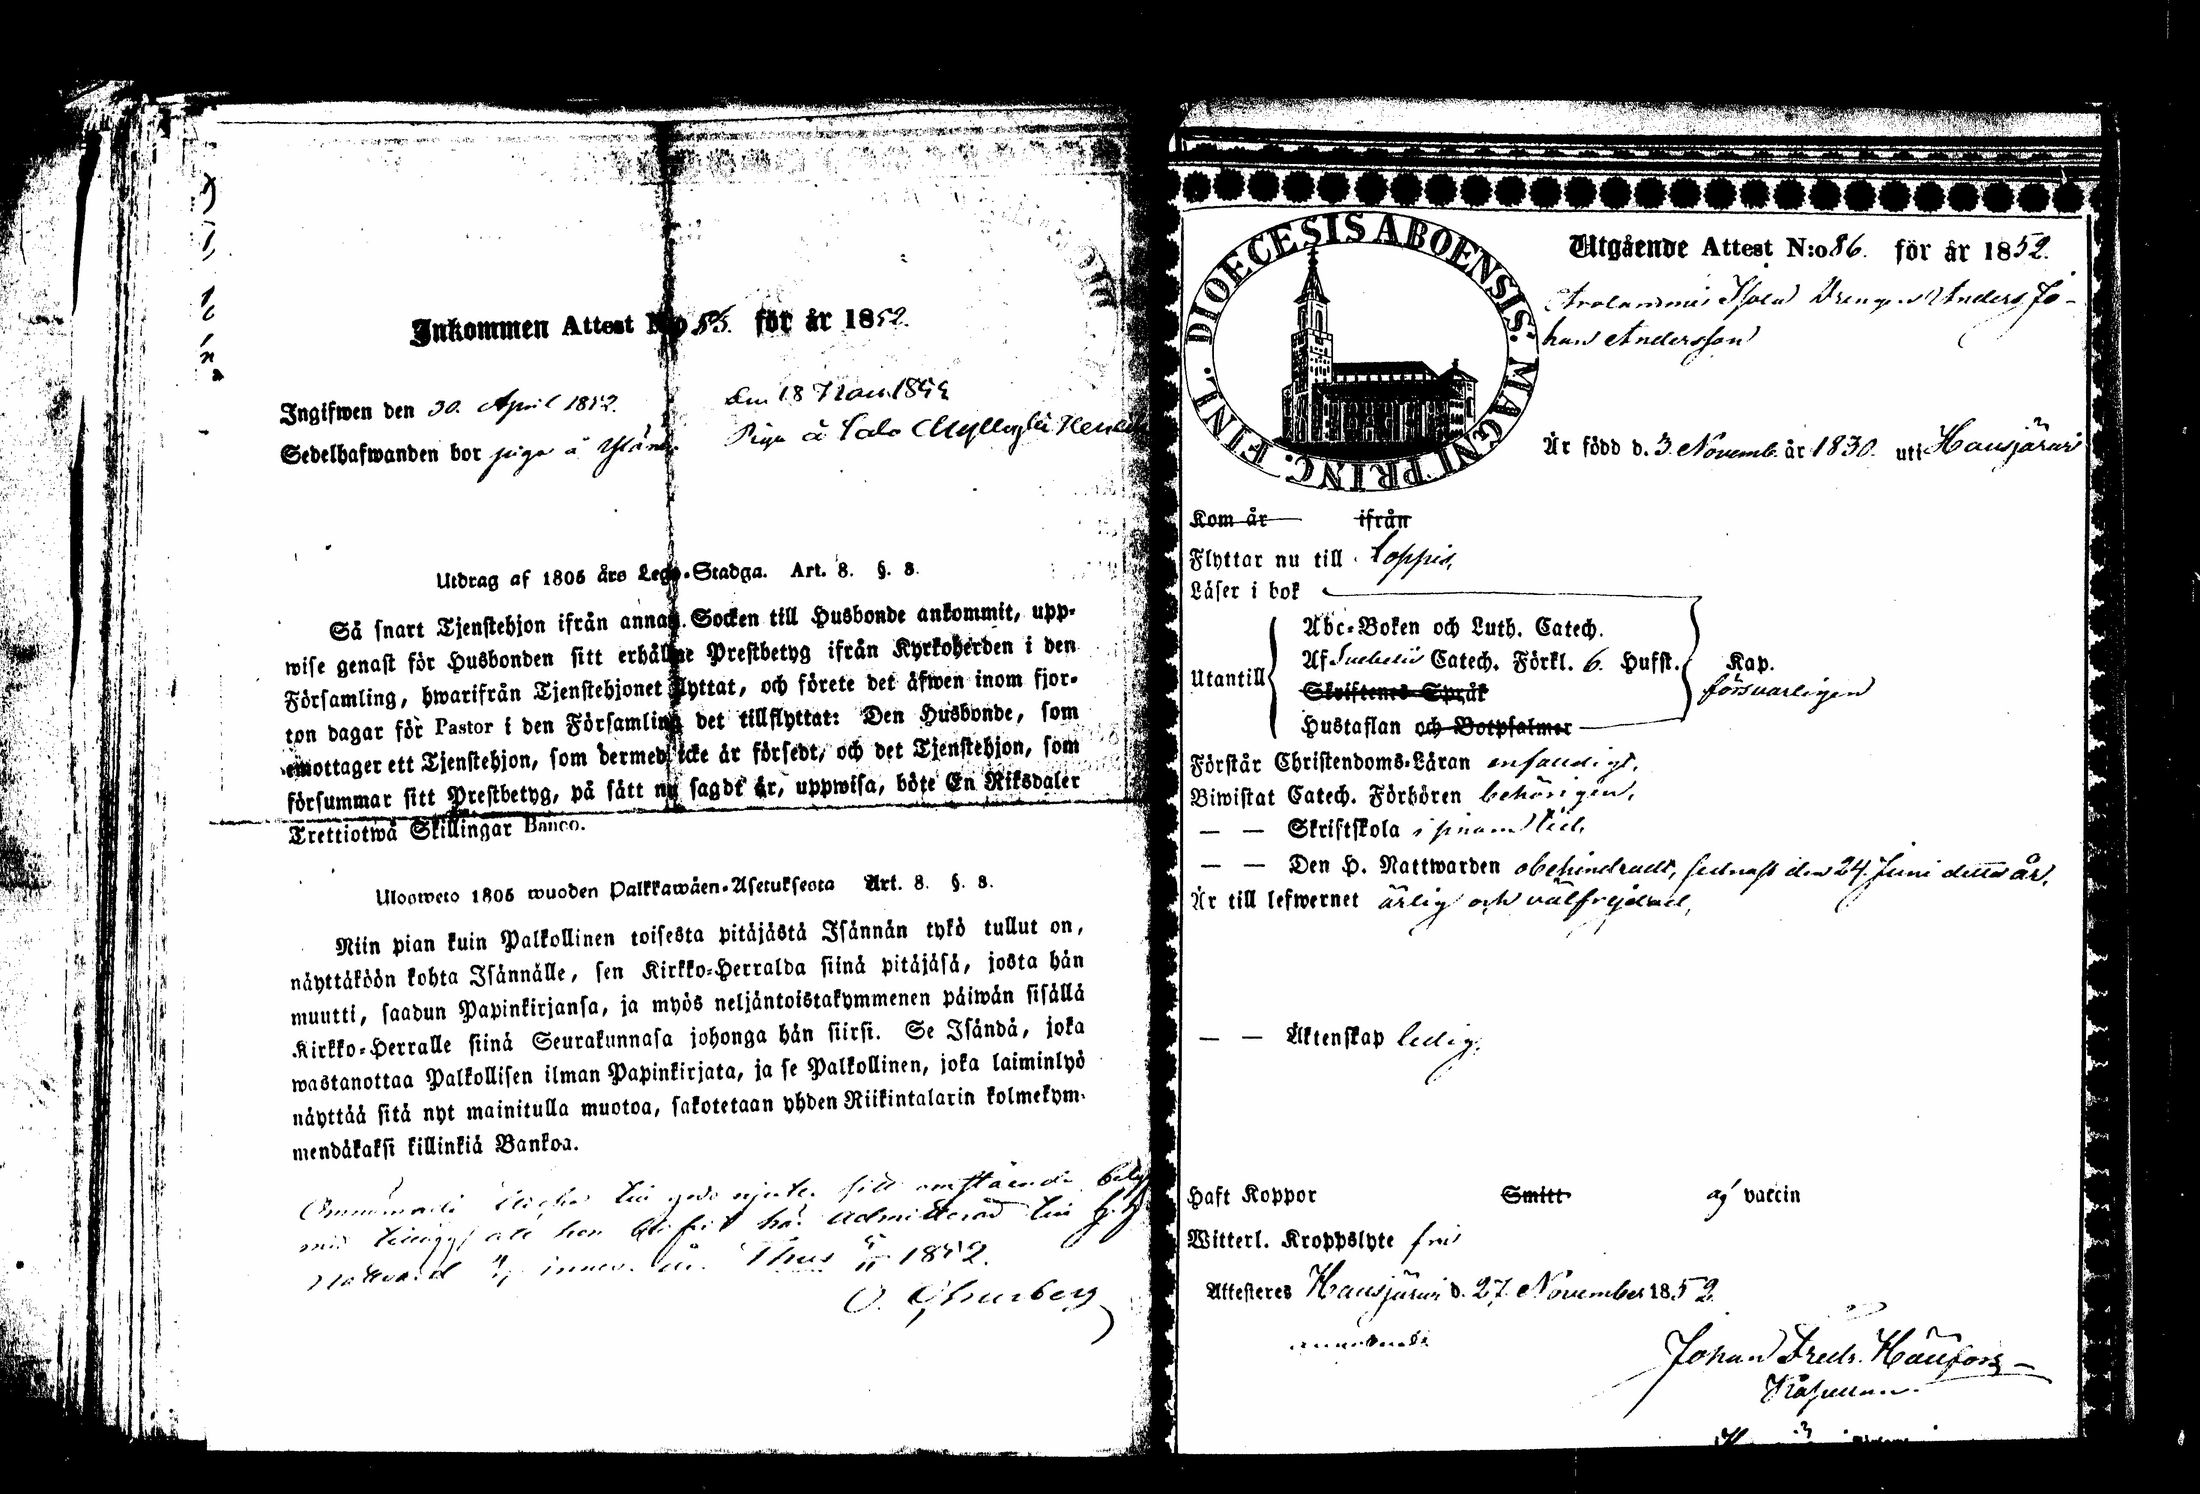 Inkommen Attest N:o 55. för år 1852.
Ingifwen den 30. April 1852.
den 18 1852
Sedelhafwanden bor piga å
Piga å
Utdrag af 1805 års Lego-Stadga. Art. 8. §. 8.
Så snart Tjenstehjon ifrån annan Socken till Husbonde ankommit, upp-
wise genast för Husbonden sitt erhållne Prestbetyg ifrån Kyrkoherden i den
Församling, hwarifrån Tjenstehjonet flyttat, och förete det äfwen inom fjor-
ton dagar för Pastor i den Församling det tillflyttat: Den Husbonde, som
emottager ett Tjenstehjon, som dermed icke är försedt, och det Tjenstehjon, som
försummar sitt Prestbetyg, på sätt nu sagdt är, uppwisa, böte En Riksdaler
Trettiotwå Skillingar Banco.
Ulosweto 1805 wuoden Palkkawäen-Asetuksesta Art. 8. §. 8.
Niin pian kuin Palkollinen toisesta pitäjästä Isännän tykö tullut on,
näyttäköön kohta Isännälle, sen Kirkko-Herralda siinä pitäjäsä, josta hän
muutti, saadun Papinkirjansa, ja myös neljäntoistakymmenen päiwän sisällä
Kirkko-Herralle siinä Seurakunnasa johonga hän siirsi. Se Isändä, joka
wastanottaa Palkollisen ilman Papinkirjata, ja se Palkollinen, joka laiminlyö
näyttää sitä nyt mainitulla muotoa, sakotetaan yhden Riikintalarin kolmekym-
mendäkaksi killinkiä Bankoa.
hon blifvit här admitterad till H. H.
Nattvard 1852.
O.
DIOECESIS ABOENSIS. MAGNI PRINC. FINL.
Utgående Attest N:o 86. för år 1852.
Drengen Anders Jo-
han Andersson
Är född d. 3. Novemb. år 1830. uti Hausjärvi
Kom år ifrån
Flyttar nu till Loppis.
Läser i bok
Abc-Boken och Luth. Catech.
Af Svebelii Catech. Förkl. 6. Hufst. Kap.
Utantill
försvarligen
Skriftenes Språk
Hustaflan och Botpsalmer
Förstår Christendoms-Läran enfaldigt.
Biwistat Catech. Förhören behörigen.
— — Skriftskola i sinom tid.
— — Den H. Nattwarden obehindradt, sednast den 24. Juni detta år.
Är till lefwernet ärlig och välfrejdad.
— — Äktenskap ledig.
Haft Koppor Smitt ag vaccin
Witterl. Kroppslyte fri
Attesteres Hausjärvi d. 27. November 1852.
Johan Fredr.